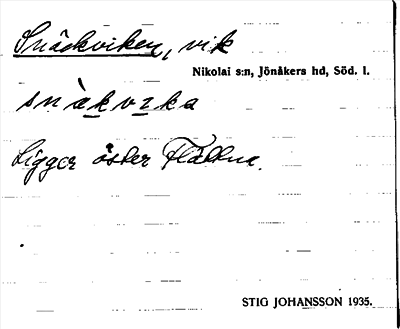 Snäckviken, vik
Nikolai s:n, Jönåkers hd, Söd. l.
snàkvɪka
Ligger öster
STIG JOHANSSON 1935.